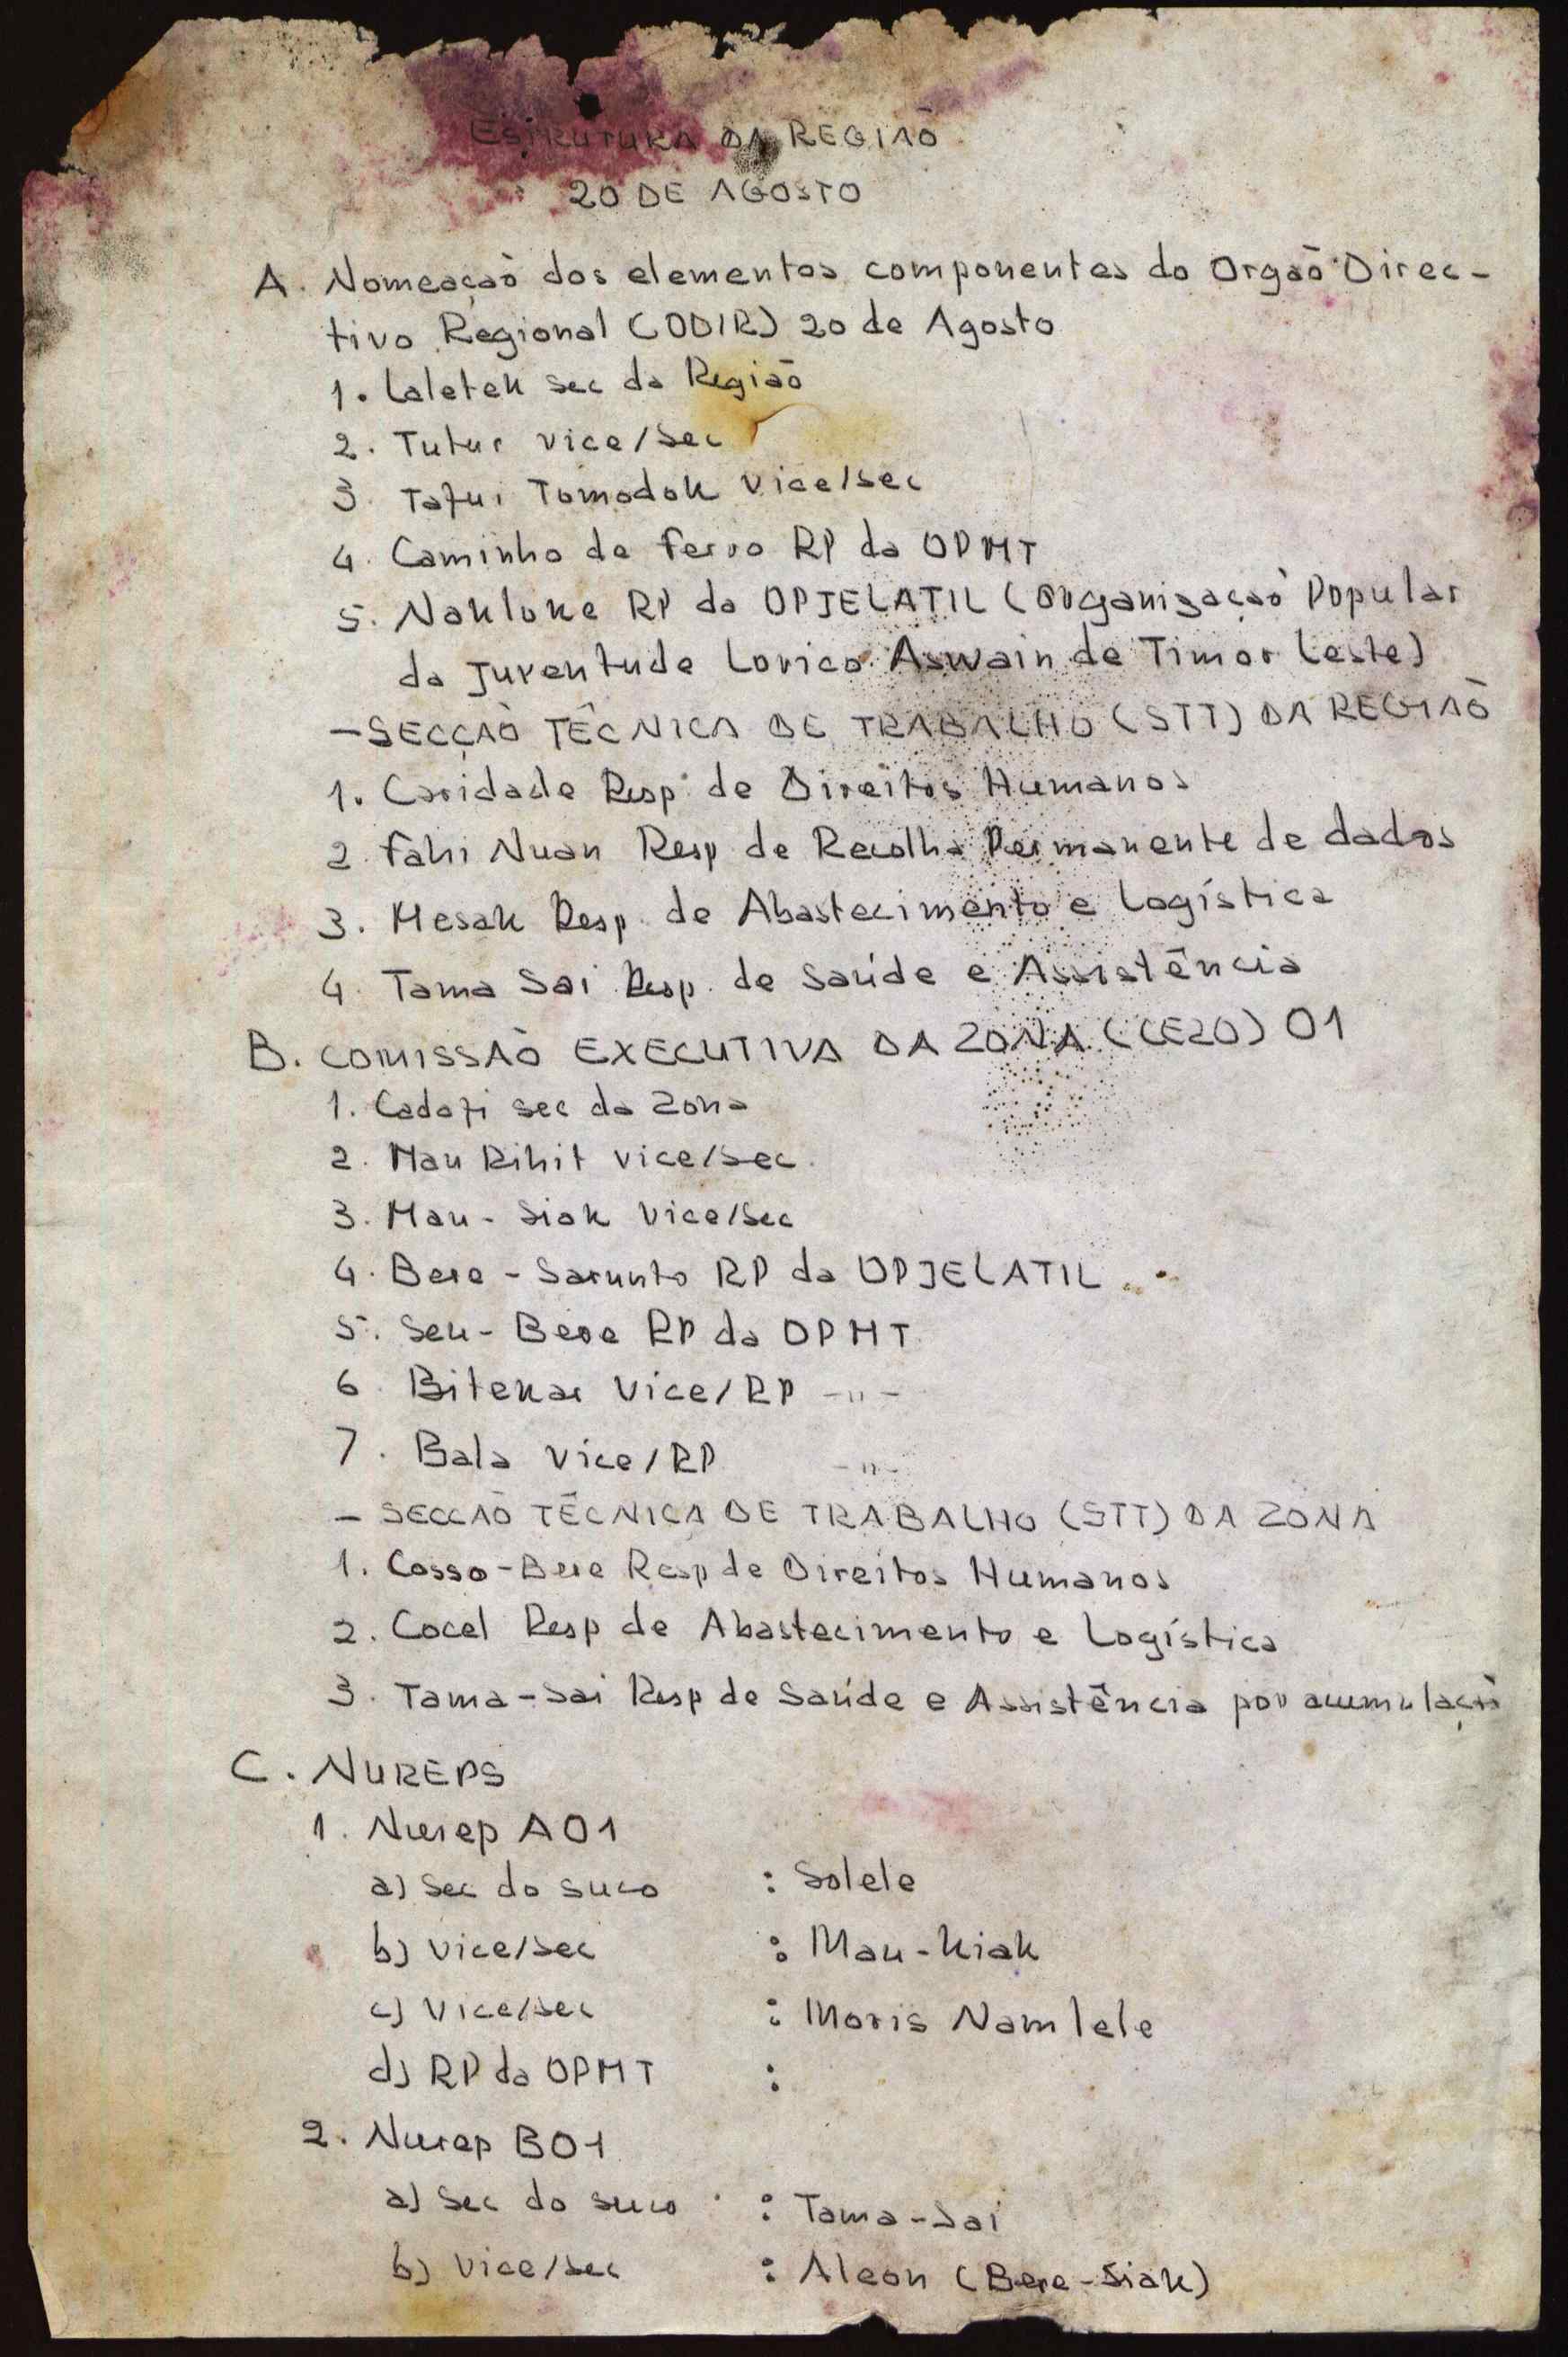 ESTRUTURA DA REGIAÕ
20 DE AGOSTO
A. Nomeaçaõ dos elementos componentes do Orgaõ Direc-
tivo Regional (ODIR) 20 de Agosto
1. Laletek sec da Regiaõ
2. Tutur vice/sec
3. Tafui Tomodok vice/sec
4. Caminho de ferro RP da OPMT
5. Nakloke RP da OPJELATIL (Organizaçaõ Popular
da Juventude Lorico Aswain de Timor Leste)
- SECÇAÕ TÊCNICA DE TRABALHO (STT) DA REGIAÕ
1. Caridade Resp de Direitos Humanos
2. Fahi Nuan Resp de Recolha Permanente de dados
3. Mesak Resp. de Abastecimento e Logística
4. Tama Sai Resp. de Saúde e Assistência
B. COMISSAÕ EXECUTIVA DA ZONA (CEZO) 01
1. Cadafi sec da Zona
2. Mau Rihit vice/sec.
3. Mau-Siak Vice/sec
4. Bere-Sarunto RP da OPJELATIL
5. Seu-Bere RP da OPMT
6. Bitekar Vice/RP -"-
7. Bala Vice/RP -"-
- SECCAÕ TÊCNICA DE TRABALHO (STT) DA ZONA
1. Cosso-Bere Resp de Direitos Humanos
2. Cocel Resp de Abastecimento e Logística
3. Tama-Sai Resp de Saúde e Assistência por acumulaçaõ
C. NUREPS
1. Nurep A01
a) Sec do suco : Solele
b) Vice/sec : Mau-Kiak
c) Vice/sec : Moris Namlele
d) RP da OPMT :
2. Nurep B01
a) Sec do suco : Tama-Sai
b) Vice/sec : Aleon (Bere-Siak)